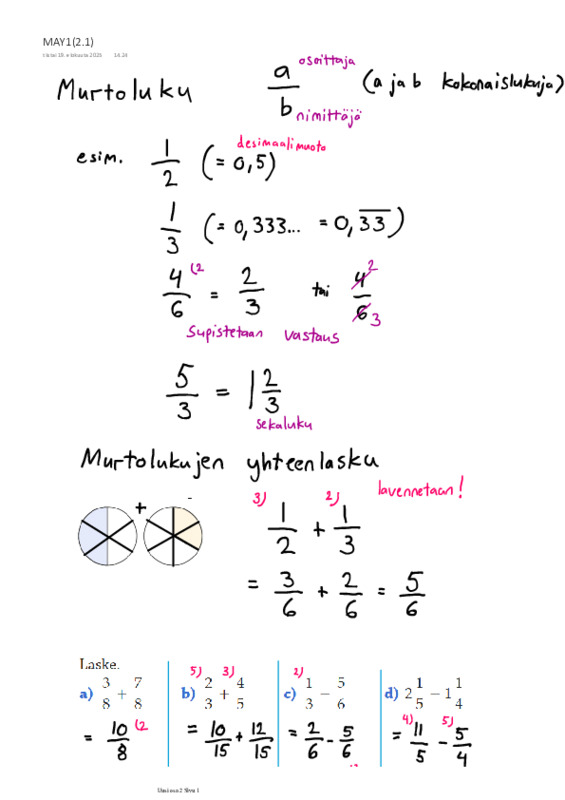 MAY1(2.1)
14.24
Murtoluku a/b osoittaja nimittäjä (a ja b kokonaislukuja)
esim. 1/2 (= 0,5) desimaalimuoto
1/3 (= 0,333... = 0,3̅3̅)
4/6 (2 = 2/3 tai 4/6 2 3
Supistetaan vastaus
5/3 = 1 2/3
sekaluku
Murtolukujen yhteenlasku
+ 3) 1/2 + 2) 1/3 lavennetaan!
= 3/6 + 2/6 = 5/6
Laske.
a) 3/8 + 7/8
= 10/8 (2
b) 5) 2/3 + 3) 4/5
= 10/15 + 12/15
c) 2) 1/3 - 5/6
= 2/6 - 5/6
d) 2 1/5 - 1 1/4
= 4) 11/5 - 5) 5/4